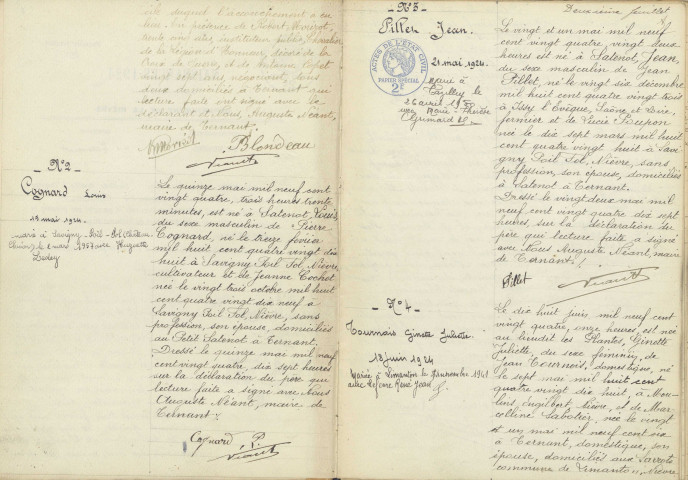 vingt sept ans, négociant, tous
deux domiciliés à Ternant qui
lecture faite ont signé avec la
déclarant et Nous, Auguste Néant,
maire de Ternant.
Blondeau
Néant
N°2
Cognard Louis
15 mai 1924.
Le quinze mai mil neuf cent
vingt quatre, trois heures trente
minutes, est né à Satenot, Louis
du sexe masculin de Pierre
Cognard, né le treize février
mil huit cent quatre vingt dix
huit à Savigny Poil Fol, Nièvre,
cultivateur et de Jeanne Cochet
née le vingt trois octobre mil huit
cent quatre vingt dix neuf à
Savigny Poil Fol, Nièvre, sans
profession, son épouse, domiciliés
au Petit Satenot à Ternant.
Dressé le quinze mai mil neuf
cent vingt quatre, dix sept heures
sur la déclaration du père qui
lecture faite a signé avec Nous
Auguste Néant, maire de
Ternant.
Cognard P.
Néant
N°3
Pillet Jean.
21 mai 1924.
ACTES DE L'ÉTAT CIVIL
PAPIER SPÉCIAL
2F
Marié à
26 avril
avec Marie Thérèse
Deuxième feuillet
Le vingt et un mai mil neuf
cent vingt quatre, vingt deux
heures est né à Satenot, Jean,
du sexe masculin de Jean
Pillet, né le vingt six décembre
mil huit cent quatre vingt trois
à Issy l'Evêque, Saône et Loire,
fermier et de Lucie Dupon
née le dix sept mars mil huit
cent quatre vingt huit à Savi
gny Poil Fol, Nièvre, sans
profession, son épouse, domiciliés
à Satenot à Ternant.
Dressé le vingt deux mai mil
neuf cent vingt quatre dix sept
heures, sur la déclaration du
père qui lecture faite a signé
avec Nous Auguste Néant, maire
de Ternant.
Pillet
Néant
N°4
Tournois Ginette Juliette.
18 juin 1924
Mariée à Limanton le novembre 1941
avec René Jean
Le dix huit juin mil neuf cent
vingt quatre, onze heures, est née
au lieudit les Plantes, Ginette
Juliette, du sexe féminin, de
Jean Tournois, domestique, né
le sept mai mil huit cent
quatre vingt dix huit, à Mou-
lins Engilbert Nièvre, et de Mar-
celline Sabotier, née le vingt
et un mai mil neuf cent six
à Ternant, domestique, son
épouse, domiciliés aux
commune de Limanton, Nièvre.